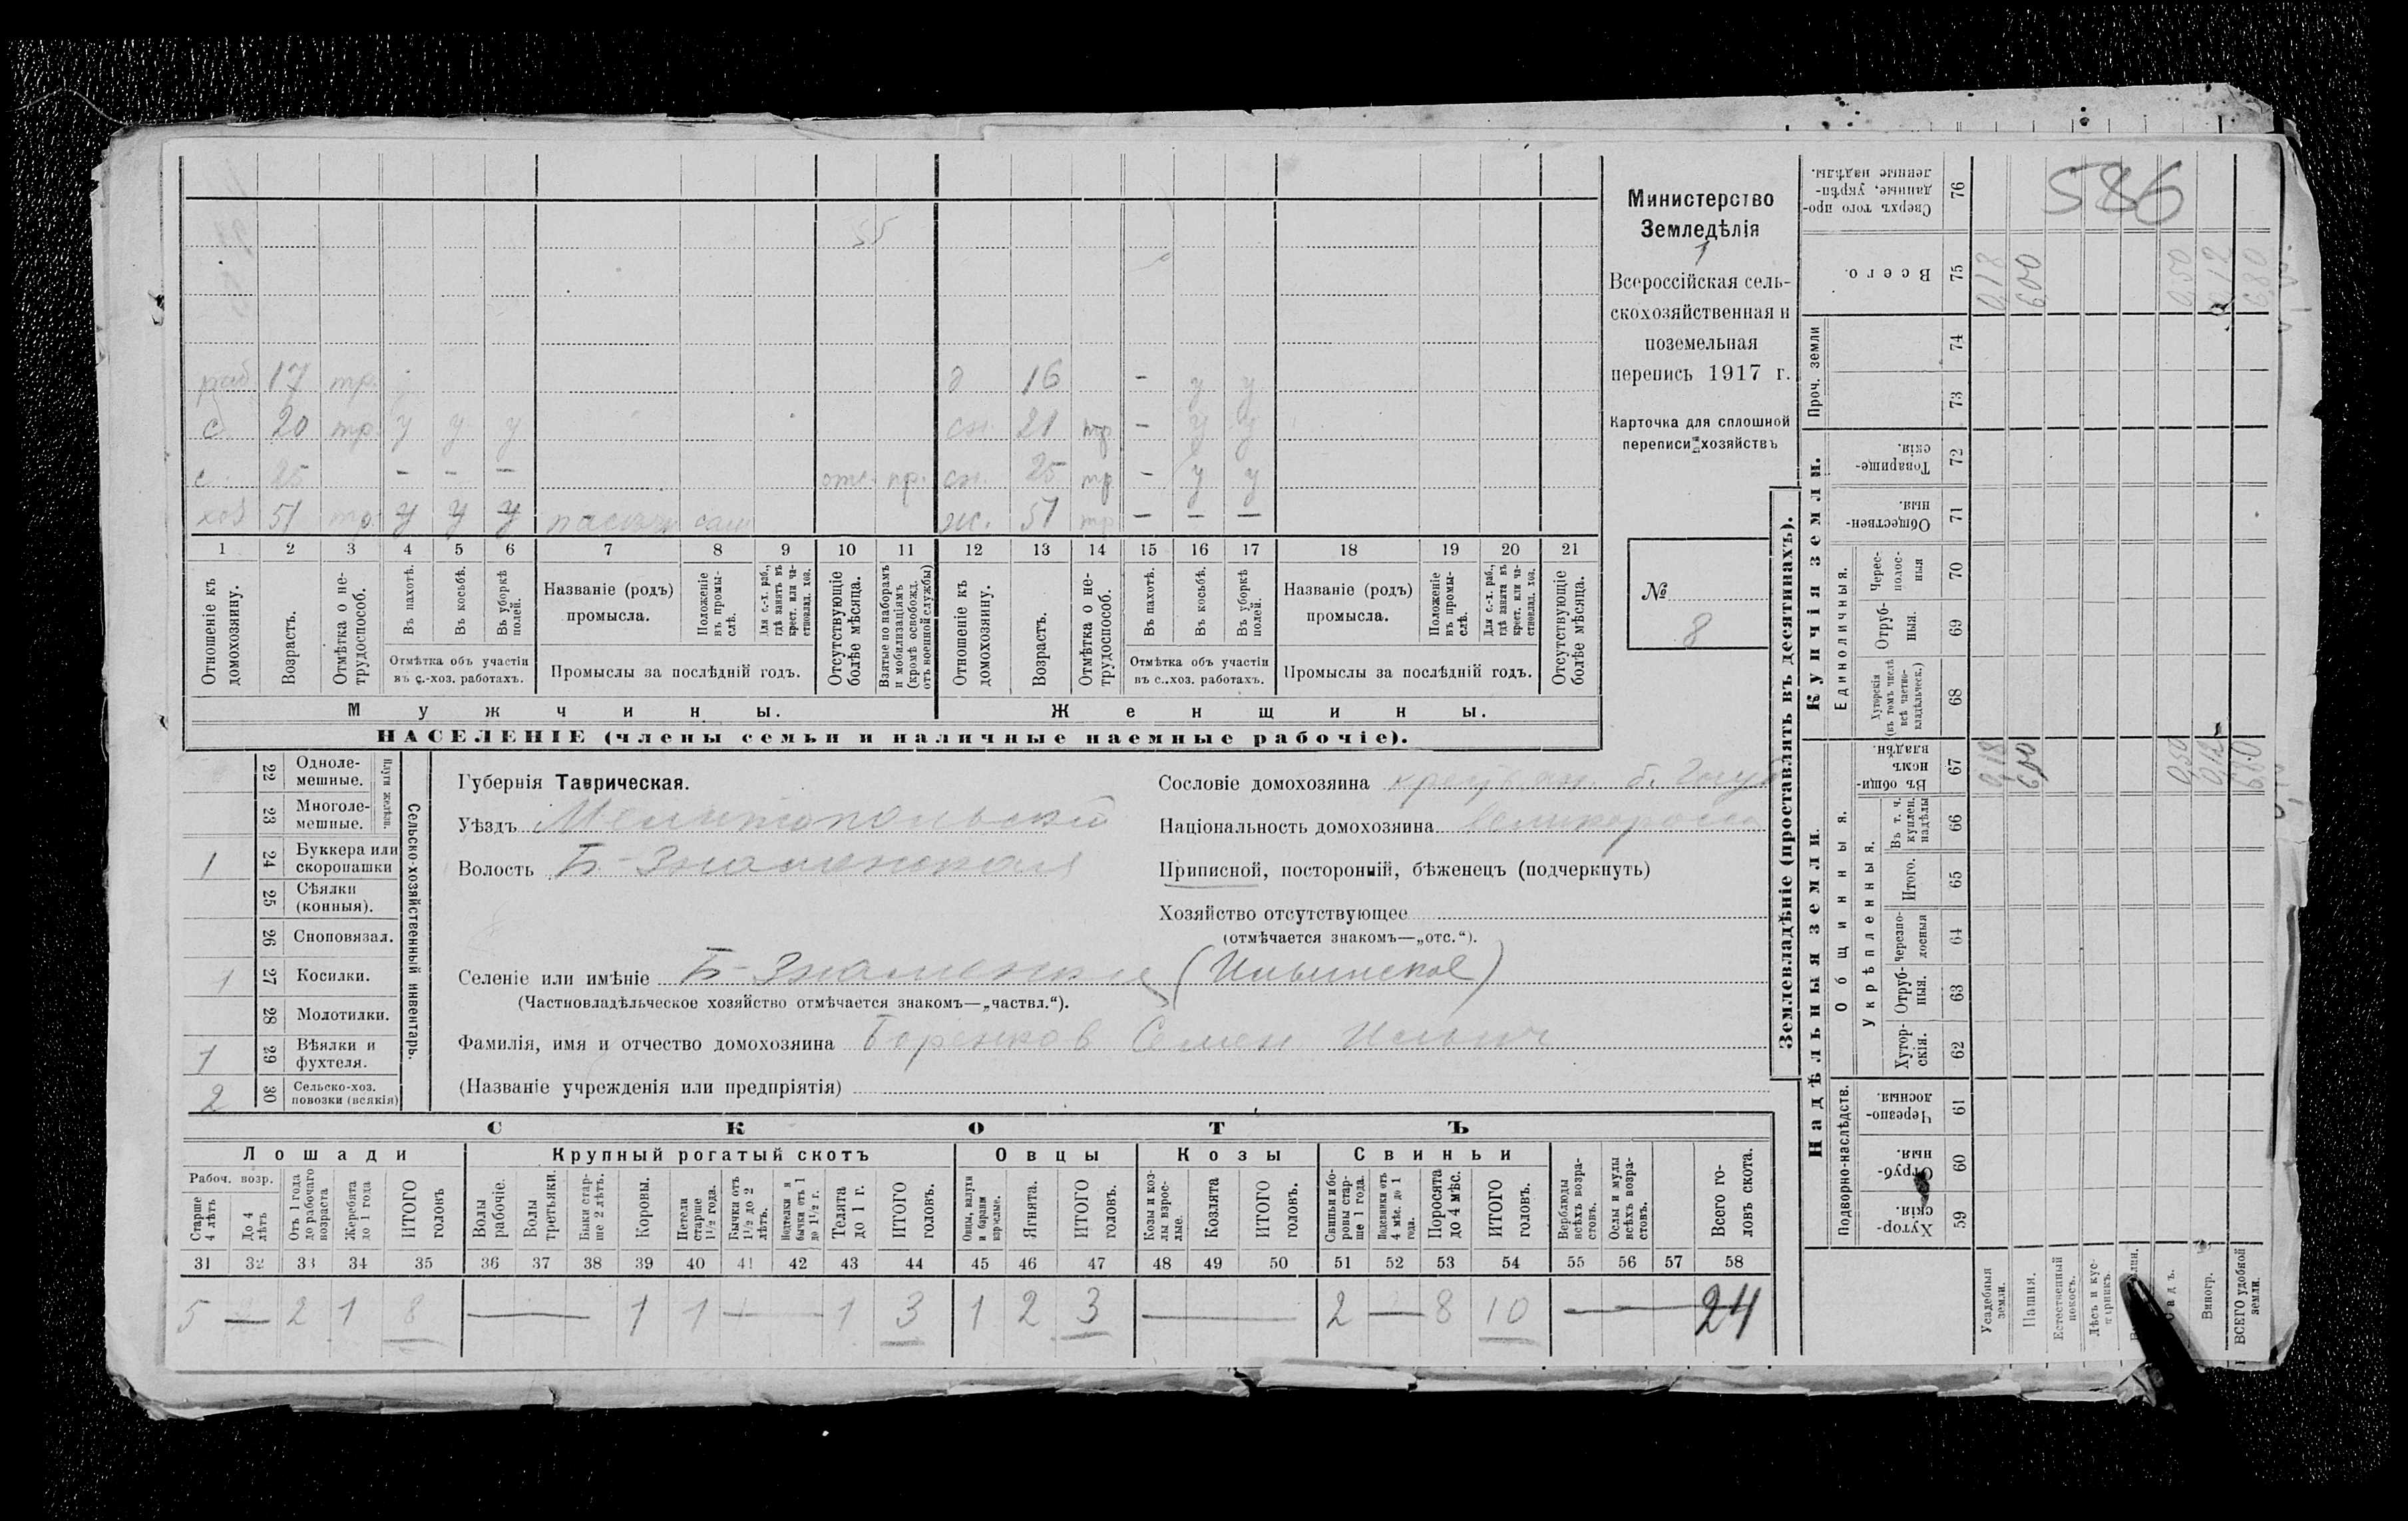 55
раб 17 тр.
д 16 - у у
с. 20 тр. у у у
сн. 21 тр - у у
с. 25 - - -
отс. пр. сн. 25 тр - у у
хоз 51 тр. у у у
ж. 51 тр - - -
1 2 3 4 5 6 7 8 9 10 11 12 13 14 15 16 17 18 19 20 21
Отношеніе къ домохозяину.
Возрастъ.
Отмѣтка о нетрудоспособ.
Въ пахотѣ.
Въ косьбѣ.
Въ уборкѣ полей.
Отмѣтка объ участіи
въ с.-хоз. работахъ.
Названіе (родъ)
промысла.
Положеніе въ промыслѣ.
Для с.-х. раб., гдѣ занятъ въ крест. или частновлад. хоз.
Промыслы за послѣдній годъ.
Отсутствующіе болѣе мѣсяца.
Взятые по наборамъ и мобилизаціямъ (кромѣ освобожд. отъ военной службы)
Отношеніе къ домохозяину.
Возрастъ.
Отмѣтка о нетрудоспособ.
Въ пахотѣ.
Въ косьбѣ.
Въ уборкѣ полей.
Отмѣтка объ участіи
въ с..хоз. работахъ.
Названіе (родъ)
промысла.
Положеніе въ промыслѣ.
Для с.-х. раб., гдѣ занята въ крест. или частновлад. хоз.
Промыслы за послѣдній годъ.
Отсутствующіе болѣе мѣсяца.
Мужчины.
Женщины.
НАСЕЛЕНІЕ (члены семьи и наличные наемные рабочіе).
Министерство
Земледѣлія
Всероссійская сель-
скохозяйственная и
поземельная
перепись 1917 г.
Карточка для сплошной
переписи хозяйствъ
№
8
22 Одноле-
мешные.
23 Многоле-
мешные.
Плуги желѣзн.
1 24 Буккера или
скоропашки
25 Сѣялки
(конныя).
26 Сноповязал.
1 27 Косилки.
28 Молотилки.
1 29 Вѣялки и
фухтеля.
2 30 Сельско-хоз.
повозки (всякія)
Сельско-хозяйственный инвентарь.
Губернія Таврическая.
Уѣздъ Мелитопольский
Волость Б-Знаменская
Селеніе или имѣніе Б-Знаменка (Ильинское)
(Частновладѣльческое хозяйство отмѣчается знакомъ—„частвл.“).
Фамилія, имя и отчество домохозяина Боренков Семен Ильич
(Названіе учрежденія или предпріятія)
Сословіе домохозяина крестьян.
Національность домохозяина великоросс
Приписной, посторонній, бѣженецъ (подчеркнуть)
Хозяйство отсутствующее
(отмѣчается знакомъ—„отс.“).
СКОТЪ
Лошади
Крупный рогатый скотъ
Овцы
Козы
Свиньи
Рабоч. возр.
Старше 4 лѣтъ
До 4 лѣтъ
Отъ 1 года до рабочаго возраста
Жеребята до 1 года
ИТОГО головъ
Волы рабочіе.
Волы третьяки.
Быки старше 2 лѣтъ.
Коровы.
Нетели старше 1½ года.
Бычки отъ 1½ до 2 лѣтъ.
Подтелки и бычки отъ 1 до 1½ г.
Телята до 1 г.
ИТОГО головъ.
Овцы, валухи и бараны взрослые.
Ягнята.
ИТОГО головъ.
Козы и козлы взрослые.
Козлята
ИТОГО головъ.
Свиньи и боровы старше 1 года.
Подсвинки отъ 4 мѣс. до 1 года.
Поросята до 4 мѣс.
ИТОГО головъ.
Верблюды всѣхъ возрастовъ.
Ослы и мулы всѣхъ возрастовъ.
Всего головъ скота.
31 32 33 34 35 36 37 38 39 40 41 42 43 44 45 46 47 48 49 50 51 52 53 54 55 56 57 58
5 — 2 1 8 — 1 1 — 1 3 1 2 3 — 2 — 8 10 — 24
586
Землевладѣніе (проставлять въ десятинахъ).
Надѣльныя земли.
Купчія земли.
Проч. земли
Подворно-наслѣдств.
Общинныя.
Укрѣпленныя.
Единоличныя.
Сверхъ того проданные, укрѣпленные надѣлы. 76
Всего. 75
74
73
Товарищескія. 72
Общественныя. 71
Чересполосныя 70
Отрубныя. 69
Хуторскія (въ томъ числѣ всѣ частновладѣльческ.) 68
Въ общинномъ владѣн. 67
Въ т. ч. куплен. надѣлы 66
Итого. 65
Черезполосныя 64
Отрубныя. 63
Хуторскія. 62
Черезполосныя. 61
Отрубныя. 60
Хуторскія. 59
Усадебныя земли.
Пашня.
Естественный покосъ.
Лѣсъ и кустарникъ.
Виногр.
ВСЕГО удобной земли.
0,18 600 0,50 0,12 6,80
0,18 600 0,50 0,12 6,80